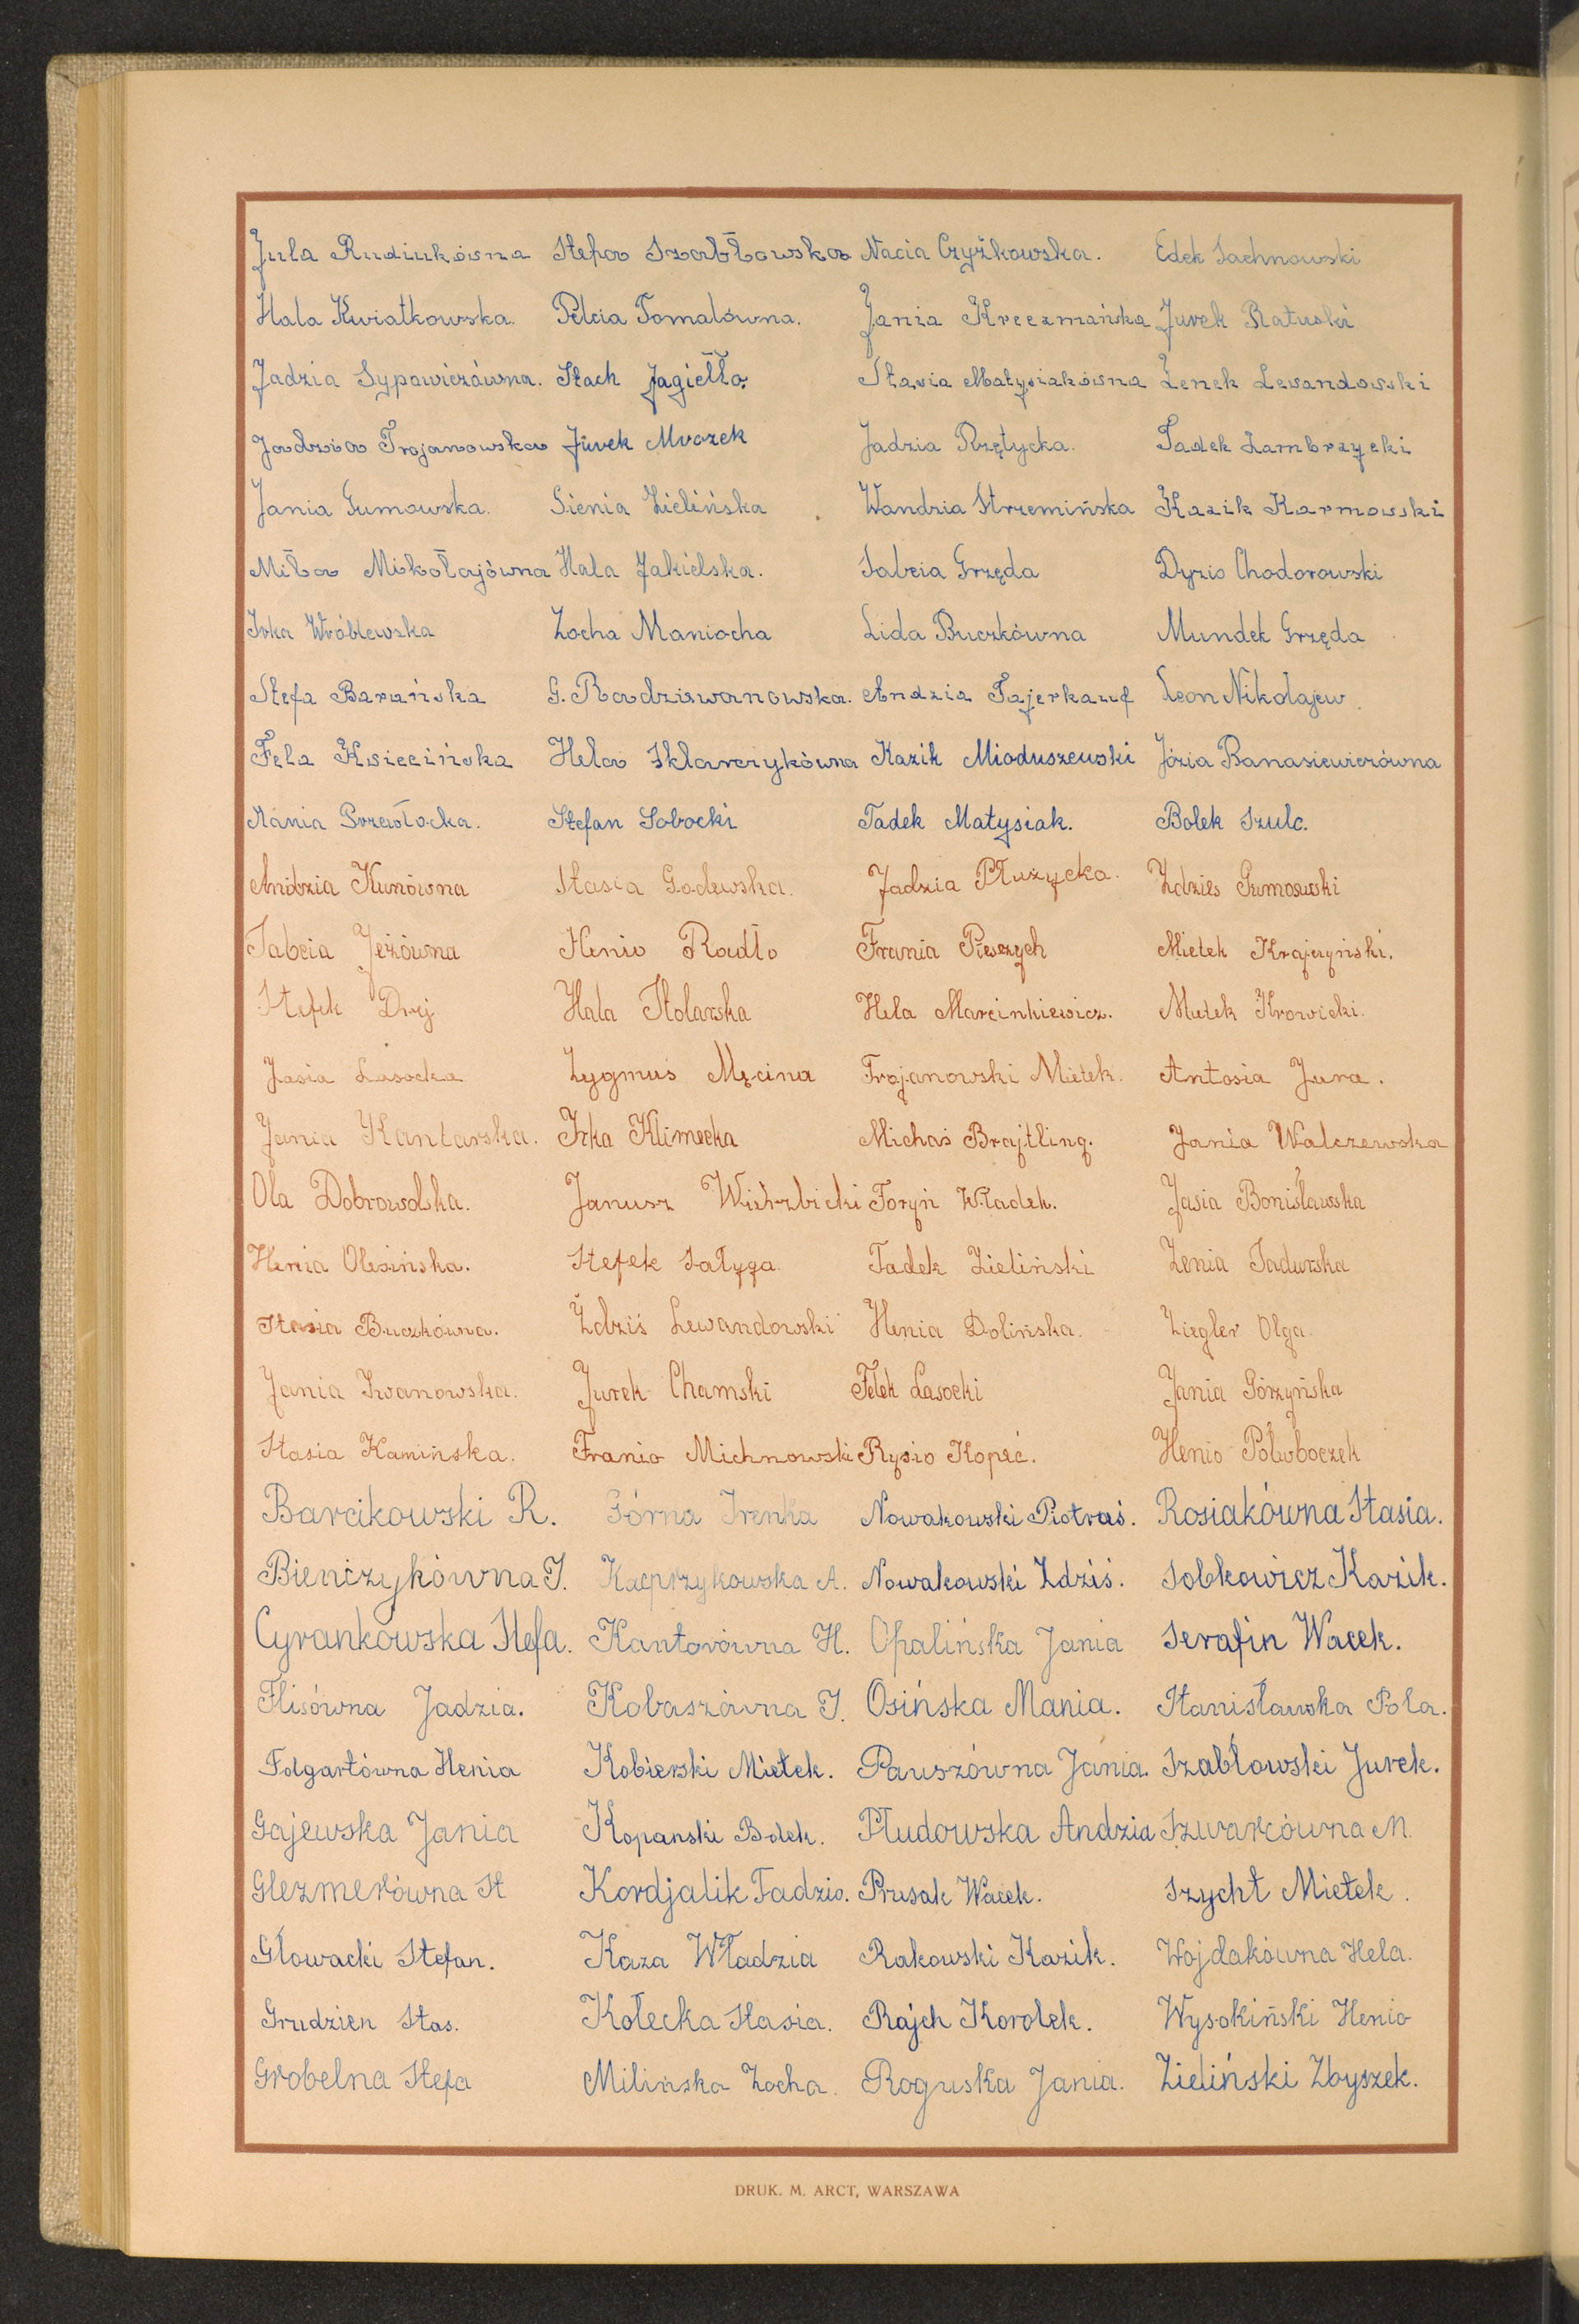 Jula Rudiukówna Stefa Szabłowska Nacia Czyżkowska. Edek Sachnowski
Hala Kwiatkowska. Pelcia Tomalówna. Jania Kreczmańska Jurek Ratuski
Jadzia Sypowiczówna. Stach Jagiełło. Stasia Matysiakówna Żenek Lewandowski
Jadzia Trojanowska Jurek Mrozek Jadzia Rzętycka. Tadek Zambrzycki
Jania Gumowska. Sienia Zielińska Wandzia Strzemińska Kazik Karmowski
Miła Mikołajówna Hala Jakielska. Sabcia Grzęda Dyzio Chodorowski
Irka Wróblewska Zocha Maniocha Lida Buczkówna Mundek Grzęda
Stefa Barańska G. Radziwanowska. Andzia Fajerkauf Leon Nikolajew.
Fela Ksiecińska Hela Sklarczykówna Kazik Mioduszewski Józia Banasiewiczówna
Mania Przewłocka. Stefan Sobocki Tadek Matysiak. Bolek Szulc.
Andzia Kunówna Stasia Godewska. Jadzia Płużycka. Zdzieś Gumowski
Sabcia Jeżówna Henio Radło Frania Pierzych Mietek Krajczyński.
Stefek Drej Hala Stolarska Hela Marcinkiewicz. Mietek Krowicki.
Jasia Lasocka Zygmuś Męcina Trojanowski Mietek. Antosia Jura.
Jania Kantarska. Irka Klimecka Michaś Brajtling. Jania Walczewska
Ola Dobrowolska. Janusz Wierzbicki Foryń Władek. Jasia Bonisławska
Henia Olesińska. Stefek Sałyga. Tadek Zieliński Zenia Sadurska
Stasia Buczkówna. Ździś Lewandowski Henia Dolińska. Ziegler Olga.
Jania Iwanowska. Jurek Chamski Felek Lasocki Jania Górzyńska
Stasia Kamińska. Franio Michnowski Rysio Kopeć. Henio Półboczek
Barcikowski R. Górna Irenka Nowakowski Piotruś. Rosiakówna Stasia.
Bieńczykówna I. Kacprzykowska A. Nowakowski Zdziś. Sobkowicz Kazik.
Cyrankowska Stefa. Kantorówna H. Opalińska Jania Serafin Wacek.
Flisówna Jadzia. Kobaszówna I. Osińska Mania. Stanisławska Pola.
Folgartówna Henia Kobierski Mietek. Pauszówna Jania. Szabłowski Jurek.
Gajewska Jania Kopanski Bolek. Płudowska Andzia Szwarcówna M.
Glezmerówna St Kordjalik Tadzio. Prusak Wacek. Szycht Mietek.
Głowacki Stefan. Kaza Władzia Rakowski Kazik. Wojdakówna Hela.
Grudzien Stas. Kołecka Stasia. Rajch Korolek. Wysokiński Henio
Grobelna Stefa Milińska Zocha. Roguska Jania. Zieliński Zbyszek.
DRUK. M. ARCT, WARSZAWA